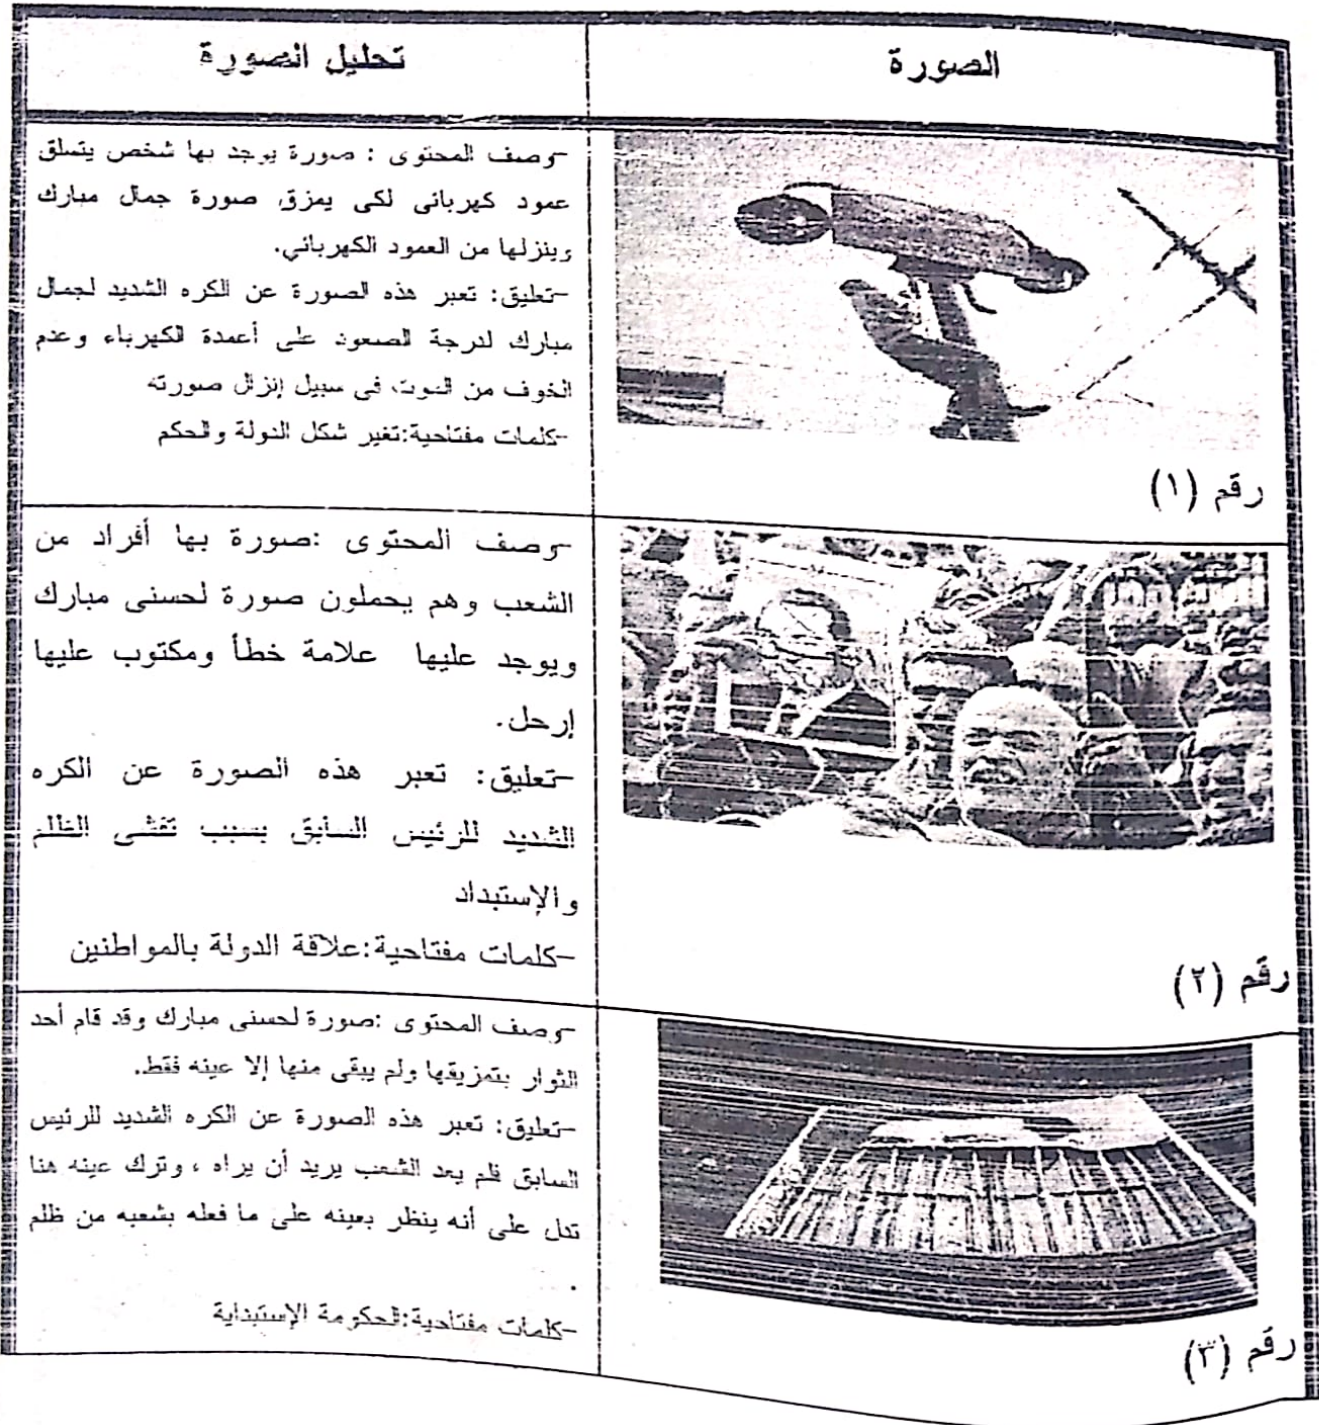 الصورة
تحليل الصورة
رقم (١)
-وصف المحتوى : صورة يوجد بها شخص يتسلق
عمود كهربائى لكى يمزق صورة جمال مبارك
وينزلها من العمود الكهربائي.
-تعليق: تعبر هذه الصورة عن الكره الشديد لجمال
مبارك لدرجة الصعود على أعمدة الكهرباء وعدم
الخوف من الموت فى سبيل إنزال صورته
-كلمات مفتاحية:تغير شكل الدولة والحكم
رقم (٢)
-وصف المحتوى :صورة بها أفراد من
الشعب وهم يحملون صورة لحسنى مبارك
ويوجد عليها علامة خطأ ومكتوب عليها
إرحل.
-تعليق: تعبر هذه الصورة عن الكره
الشديد للرئيس السابق بسبب تفشى الظلم
والإستبداد
-كلمات مفتاحية:علاقة الدولة بالمواطنين
رقم (٣)
-وصف المحتوى :صورة لحسنى مبارك وقد قام أحد
الثوار بتمزيقها ولم يبقى منها إلا عينه فقط.
-تعليق: تعبر هذه الصورة عن الكره الشديد للرئيس
السابق فلم يعد الشعب يريد أن يراه ، وترك عينه هنا
تدل على أنه ينظر بعينه على ما فعله بشعبه من ظلم
.
-كلمات مفتاحية:الحكومة الإستبداية